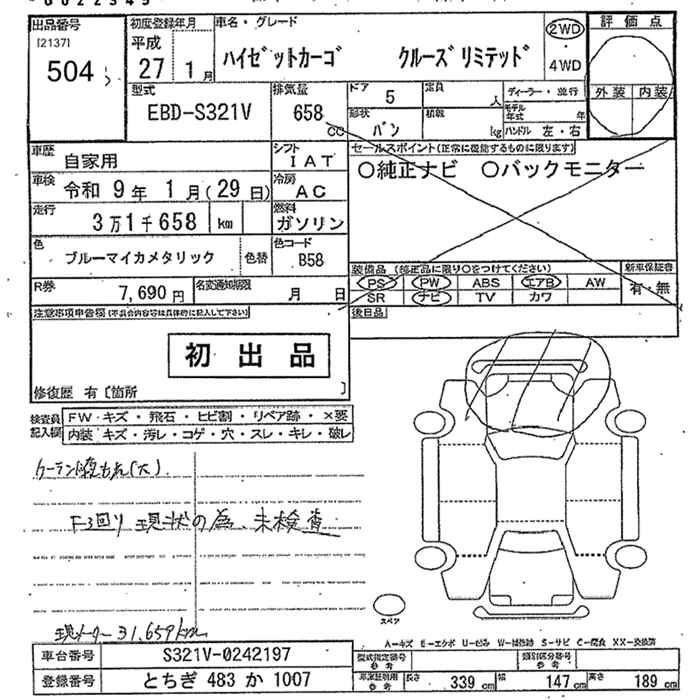 出品番号
[2137]
504
初度登録年月
平成
27 1月
車名・グレード
ハイゼットカーゴ クルーズリミテッド
2WD
・
4WD
評価点
外装 内装
型式
EBD-S321V
排気量
658
CC
ドア
5
定員
人
形状
バン
積載
kg
ディーラー・並行
モデル年式 年
ハンドル 左・右
車歴
自家用
シフト
IAT
セールスポイント(正常に機能するものに限ります)
○純正ナビ ○バックモニター
車検
令和 9年 1月(29日)
冷房
AC
走行
3万1千658 km
燃料
ガソリン
色
ブルーマイカメタリック
色替
色コード
B58
装備品 (純正品に限り○をつけてください)
PS PW ABS エアB AW
SR ナビ TV カワ
新車保証書
有・無
R券
7,690円
名変通知期限
月 日
後日品
注意事項申告欄(不具合内容等は具体的に記入して下さい)
初出品
修復歴 有〔箇所 〕
検査員記入欄
FW キズ・飛石・ヒビ割・リペア跡・×要
内装 キズ・汚レ・コゲ・穴・スレ・キレ・破レ
F3回り 現状の為、未検査
スペア
現メーター31,659km
A-キズ E-エクボ U-凹み W-補修跡 S-サビ C-腐食 XX-交換済
車台番号
S321V-0242197
型式指定番号
参考
類別区分番号
参考
登録番号
とちぎ 483 か 1007
車庫証明用
参考
長さ 339 cm 幅 147 cm 高さ 189 cm